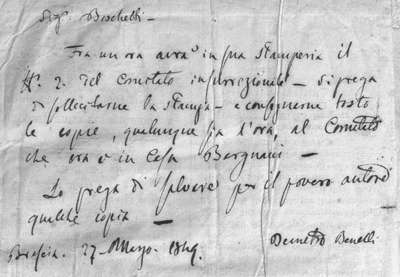 Sig.r Bischelli -
Fra un'ora avrà in sua Stamperia il
N.º 2. del Comitato insurrezionale - si prega
di sollecitarne la stampa - e consegnarne tosto
le copie, qualunque sia l'ora, al Comitato
che ora è in Casa Bargnani -
Lo prega di salvare per il povero autore
qualche copia -
Brescia. 27. Marzo. 1849.
Demetrio Benelli